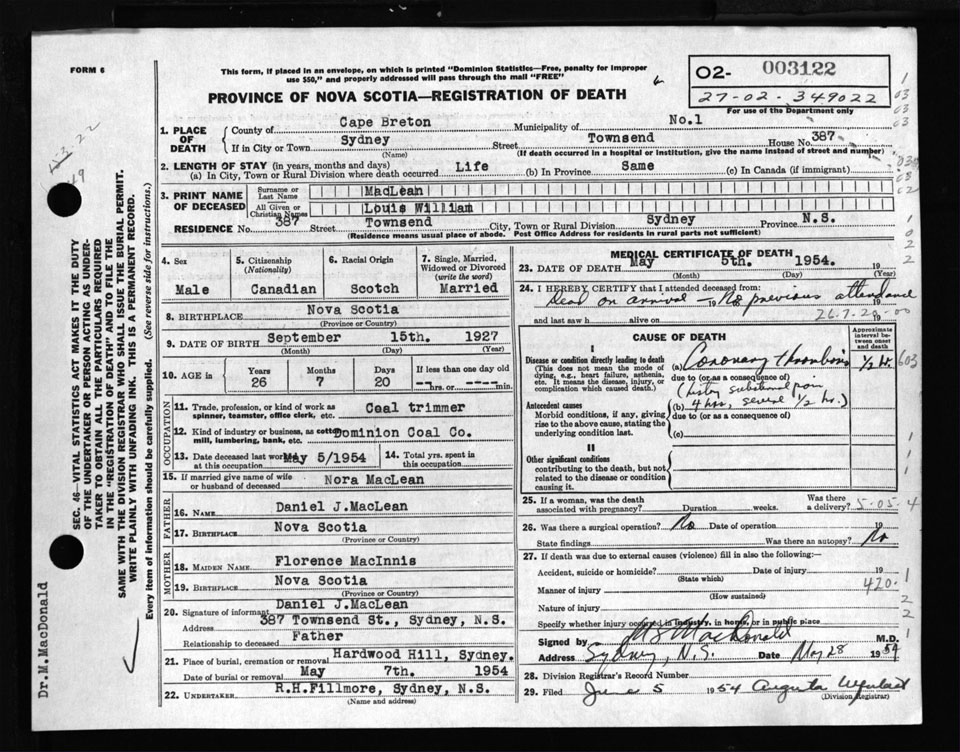 FORM 6
This form, if placed in an envelope, on which is printed "Dominion Statistics—Free, penalty for improper
use $50," and properly addressed will pass through the mail "FREE"
PROVINCE OF NOVA SCOTIA—REGISTRATION OF DEATH
02- 003122
27-02-349022
For use of the Department only
1. PLACE OF DEATH
County of Cape Breton Municipality of No.1
If in City or Town Sydney Street Townsend House No. 387
(Name) (If death occurred in a hospital or institution, give the name instead of street and number)
2. LENGTH OF STAY (in years, months and days)
(a) In City, Town or Rural Division where death occurred Life (b) In Province Same (c) In Canada (if immigrant)
3. PRINT NAME OF DECEASED
Surname or Last Name MacLean
All Given or Christian Names Louis William
RESIDENCE No. 387 Street Townsend City, Town or Rural Division Sydney Province N.S.
(Residence means usual place of abode. Post Office Address for residents in rural parts not sufficient)
4. Sex
Male
5. Citizenship (Nationality)
Canadian
6. Racial Origin
Scotch
7. Single, Married, Widowed or Divorced (write the word)
Married
8. BIRTHPLACE Nova Scotia
(Province or Country)
9. DATE OF BIRTH September 15th. 1927
(Month) (Day) (Year)
10. AGE in
Years 26
Months 7
Days 20
If less than one day old
hrs. or min.
OCCUPATION
11. Trade, profession, or kind of work as spinner, teamster, office clerk, etc. Coal trimmer
12. Kind of industry or business, as cotton mill, lumbering, bank, etc. Dominion Coal Co.
13. Date deceased last worked at this occupation May 5/1954
14. Total yrs. spent in this occupation
15. If married give name of wife or husband of deceased Nora MacLean
FATHER
16. NAME Daniel J.MacLean
17. BIRTHPLACE Nova Scotia
(Province or Country)
MOTHER
18. MAIDEN NAME Florence MacInnis
19. BIRTHPLACE Nova Scotia
(Province or Country)
20. Signature of informant Daniel J.MacLean
Address 387 Townsend St., Sydney, N.S.
Relationship to deceased Father
21. Place of burial, cremation or removal Hardwood Hill, Sydney.
Date of burial or removal May 7th. 1954
22. UNDERTAKER R.H.Fillmore, Sydney, N.S.
(Name and address)
MEDICAL CERTIFICATE OF DEATH
23. DATE OF DEATH May 5th. 1954. 19
(Month) (Day) (Year)
24. I HEREBY CERTIFY that I attended deceased from:
Dead on arrival — No previous attendance
and last saw h alive on 19
26-7-20-00
CAUSE OF DEATH
Approximate interval between onset and death
I
Disease or condition directly leading to death
(This does not mean the mode of dying, e.g., heart failure, asthenia, etc. It means the disease, injury, or complication which caused death.)
(a) Coronary thrombosis 1/2 hr.
due to (or as a consequence of)
Antecedent causes
Morbid conditions, if any, giving rise to the above cause, stating the underlying condition last.
(b) 4 hrs, several 1/2 hr.)
due to (or as a consequence of)
(c)
II
Other significant conditions
contributing to the death, but not related to the disease or condition causing it.
25. If a woman, was the death associated with pregnancy? Duration weeks. Was there a delivery?
5-05-4
26. Was there a surgical operation? No Date of operation 19
State findings Was there an autopsy? No
27. If death was due to external causes (violence) fill in also the following:—
Accident, suicide or homicide? Date of injury 19
(State which)
Manner of injury 420.
(How sustained)
Nature of injury
Specify whether injury occurred in industry, in home, or in public place
Signed by MacDonald M.D.
Address Sydney, N.S. Date May 28 1954
28. Division Registrar's Record Number
29. Filed June 5 1954
(Division Registrar)
SEC. 46—VITAL STATISTICS ACT MAKES IT THE DUTY
OF THE UNDERTAKER OR PERSON ACTING AS UNDER-
TAKER TO OBTAIN ALL THE PARTICULARS REQUIRED
IN THE "REGISTRATION OF DEATH" AND TO FILE THE
SAME WITH THE DIVISION REGISTRAR WHO SHALL ISSUE THE BURIAL PERMIT.
WRITE PLAINLY WITH UNFADING INK. THIS IS A PERMANENT RECORD.
Every item of information should be carefully supplied. (See reverse side for instructions.)
Dr.M.MacDonald